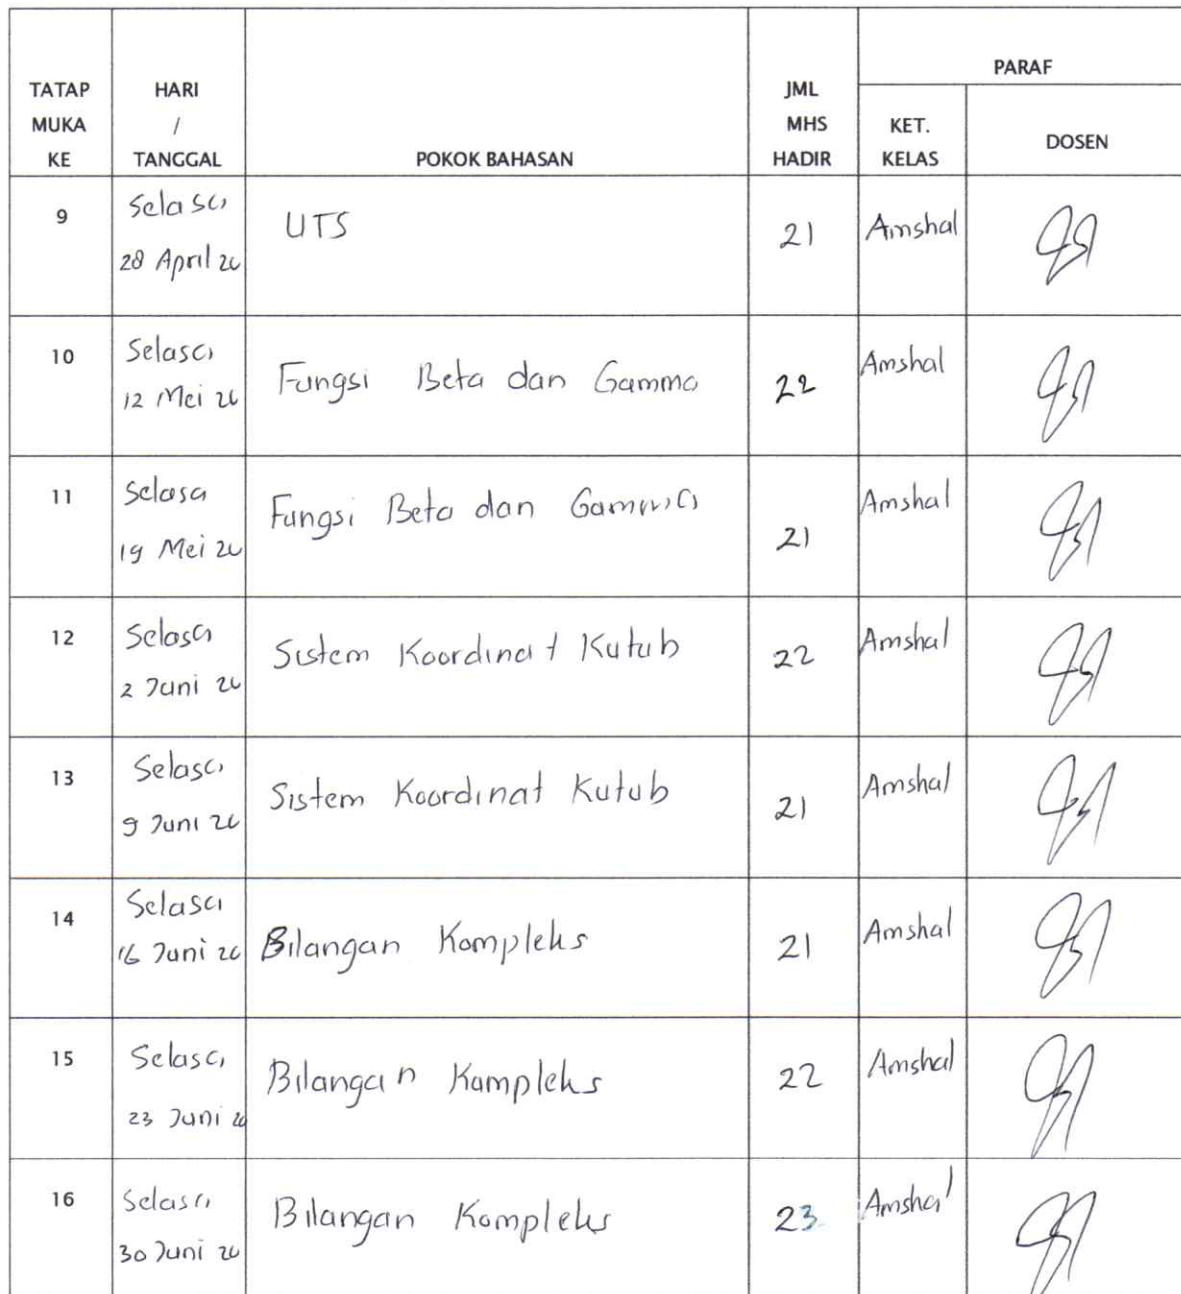 TATAP MUKA KE
HARI / TANGGAL
POKOK BAHASAN
JML MHS HADIR
PARAF
KET. KELAS
DOSEN
9
Selasa
28 April 20
UTS
21
Amshal
10
Selasa
12 Mei 20
Fungsi Beta dan Gamma
22
Amshal
11
Selasa
19 Mei 20
Fungsi Beta dan Gamma
21
Amshal
12
Selasa
2 Juni 20
Sistem Koordinat Kutub
22
Amshal
13
Selasa
9 Juni 20
Sistem Koordinat Kutub
21
Amshal
14
Selasa
16 Juni 20
Bilangan Kompleks
21
Amshal
15
Selasa
23 Juni 20
Bilangan Kompleks
22
Amshal
16
Selasa
30 Juni 20
Bilangan Kompleks
23
Amshal